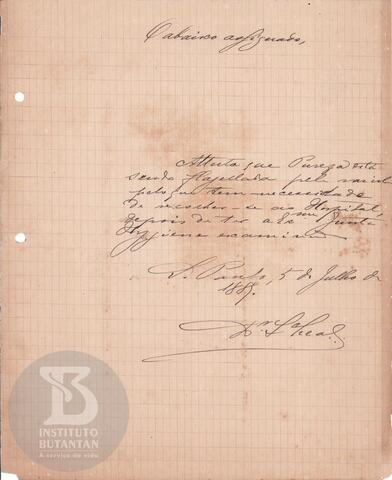 O abaixo assignado,
Attesto que Pureza está
sendo flagellada pela variola
pelo que tem necessidade
de recolher-se ao Hospital
depois de ter a Ex
ma Junta
Hygiene examinado
S. Paulo, 5 de Julho de
1889.
Dr. Leal.
INSTITUTO
BUTANTAN
A serviço da vida